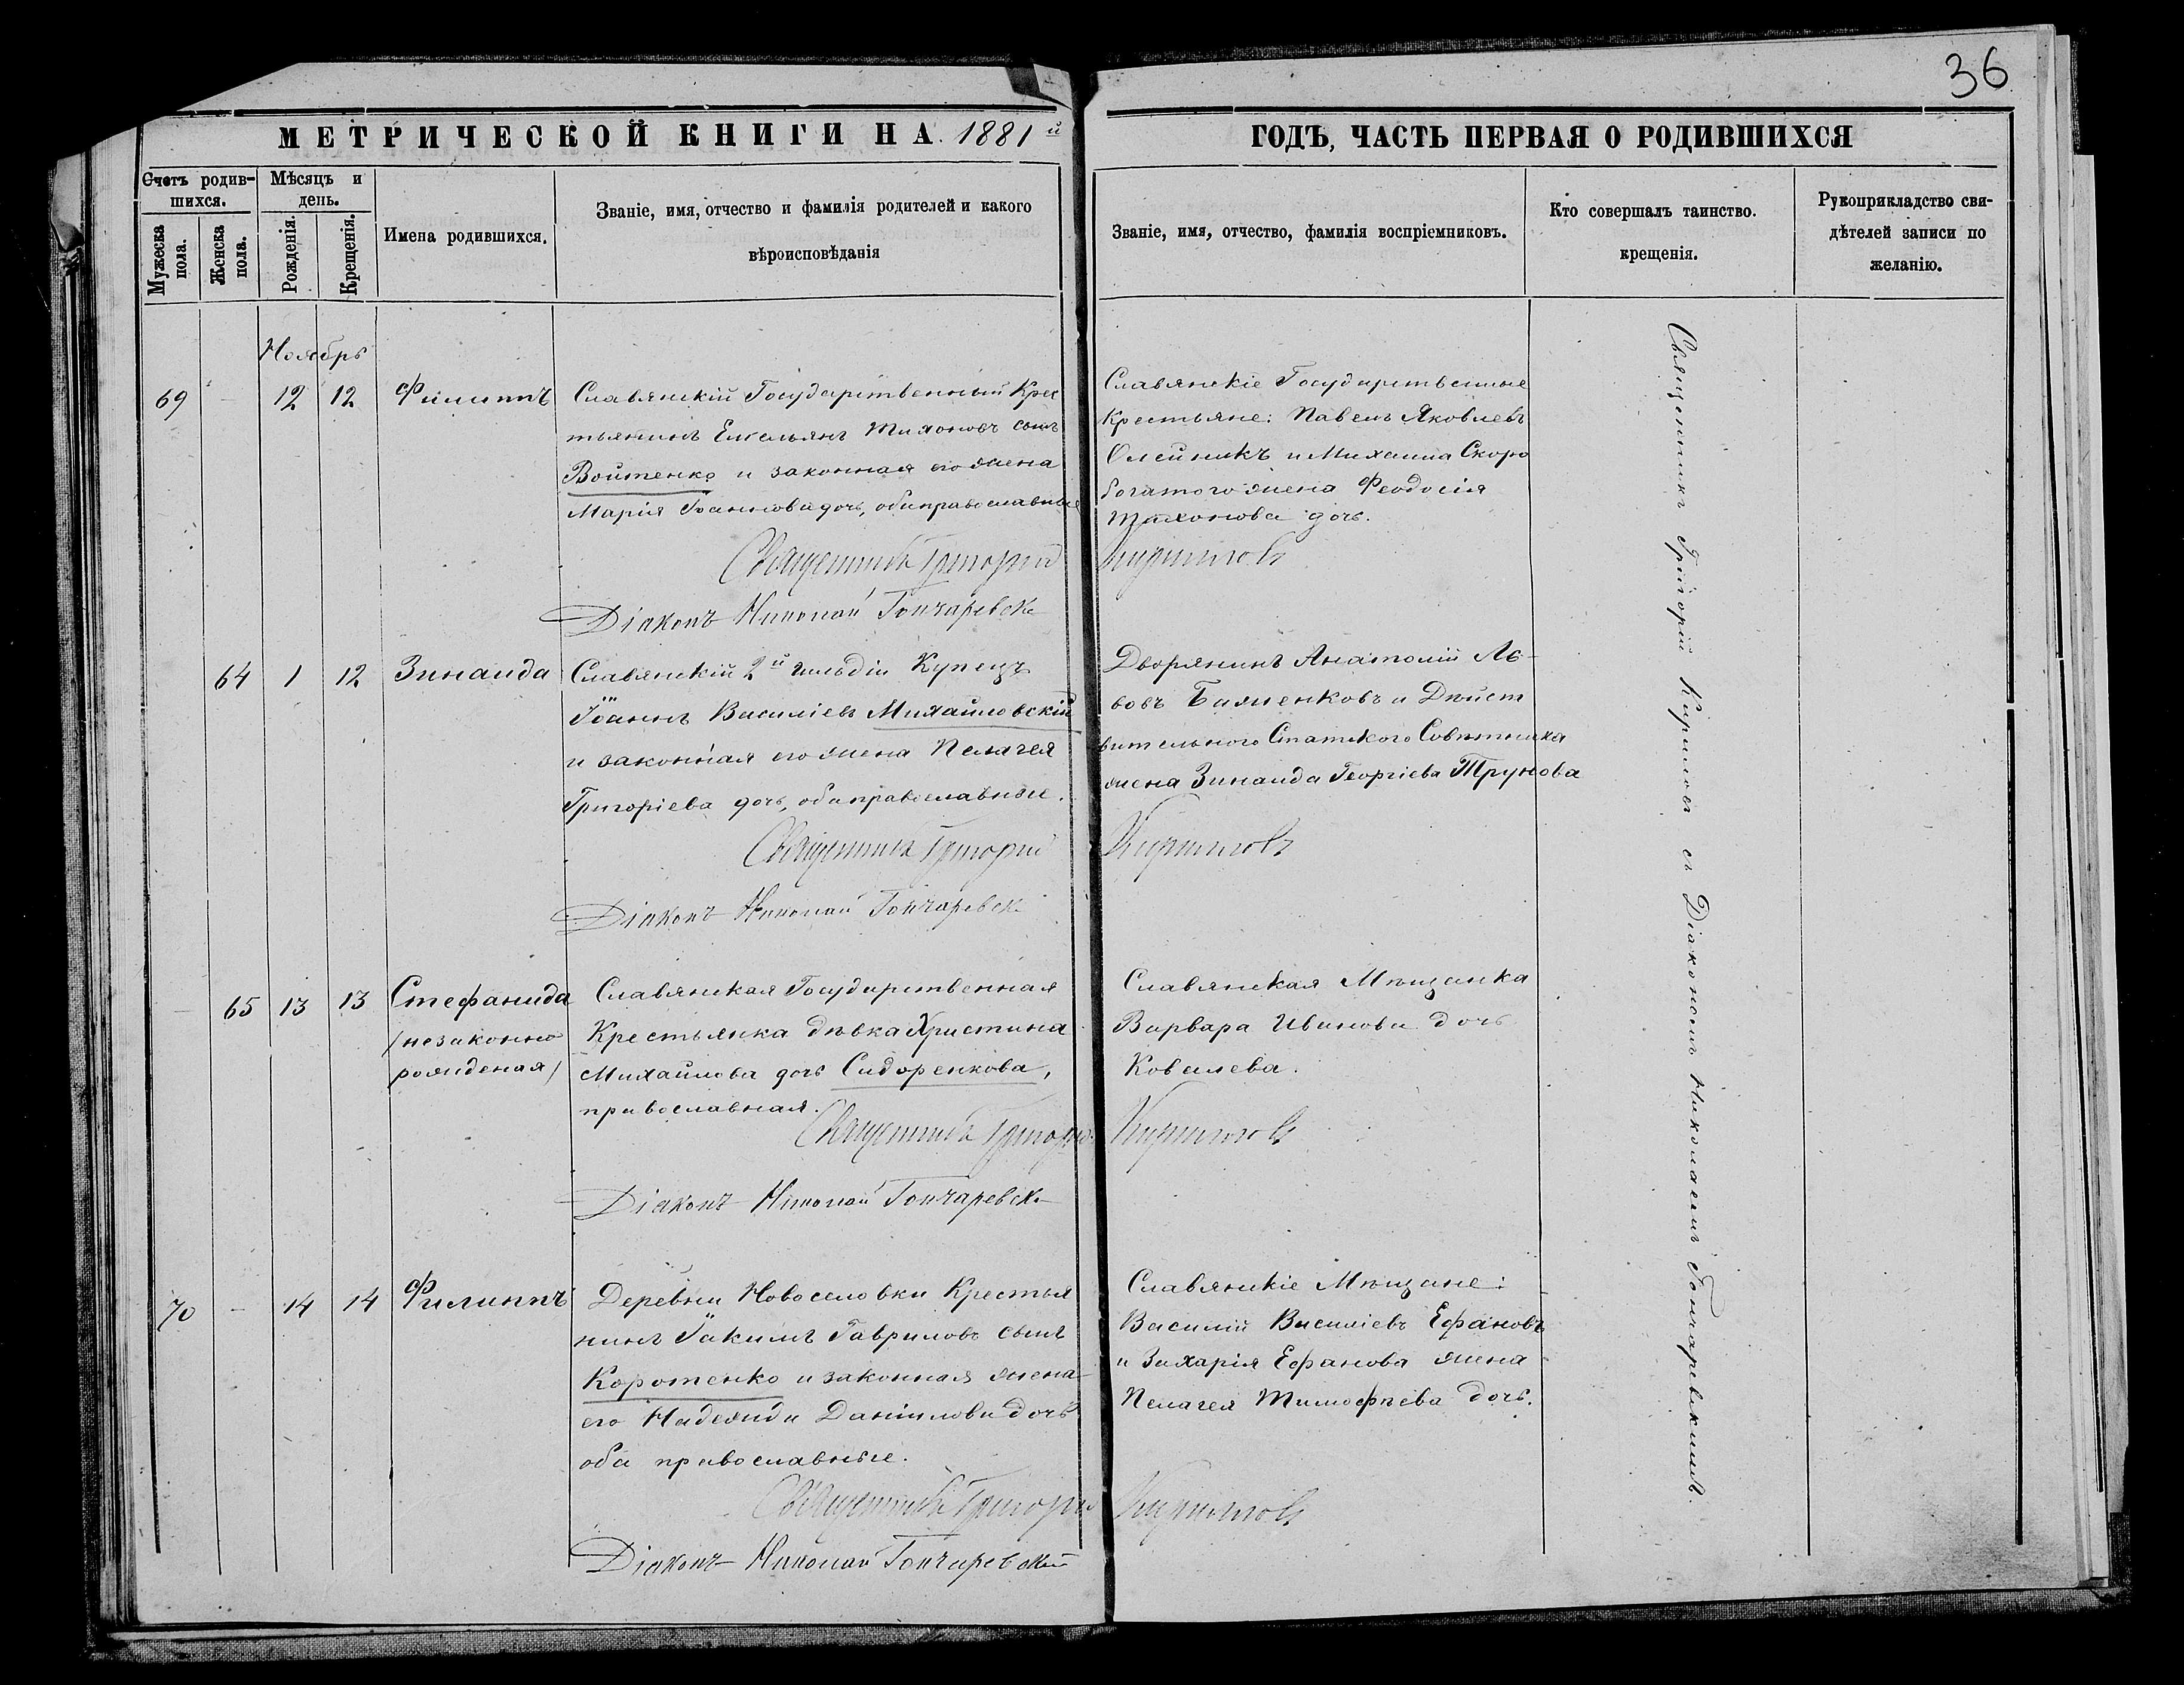 36
МЕТРИЧЕСКОЙ КНИГИ НА 1881й
ГОДЪ, ЧАСТЬ ПЕРВАЯ О РОДИВШИХСЯ
Счетъ родив-
шихся.
Мужеска
пола.
Женска
пола.
Мѣсяцъ и
день.
Рожденія.
Крещенія.
Имена родившихся.
Званіе, имя, отчество и фамилія родителей и какого
вѣроисповѣданія
Званіе, имя, отчество, фамилія воспріемниковъ.
Кто совершалъ таинство.
крещенія.
Рукоприкладство сви-
дѣтелей записи по
желанію.
Ноябрь
69 - 12 12 Филиппъ
Славянскій Государственный Крес
тьянинъ Емельянъ Тихоновъ сынъ
Войтенко и законная его жена
Марія Іоаннова дочь, оба православные
Славянскіе Государственные
Крестьяне: Павелъ Яковлевъ
Олейникъ и Михаила Скоро
богатого жена Феодосія
Тихонова дочь.
Священникъ Григорій Кириловъ
Діаконъ Николай Гончаревск
64 1 12 Зинаида
Славянскій 2й гильдіи Купецъ
Іоаннъ Василіевъ Михайловскій
и законная его жена Пелагея
Григоріева дочь, оба православные.
Дворянинъ Анатолій Ль-
вовъ Бажженковъ и Дѣйст
вительного Статского Совѣтника
жена Зинаида Георгіева Трунова
Священникъ Григорій Кириловъ
Діаконъ Николай Гончаревск
- 65 13 13 Стефанида
/незаконно
рожденая/
Славянская Государственная
Крестьянка дѣвка Христина
Михайлова дочь Сидоренкова,
православная.
Славянская Мѣщанка
Варвара Иванова дочь
Ковалева.
Священникъ Григорій Кириловъ
Діаконъ Николай Гончаревск
70 - 14 14 Филиппъ
Деревни Новоселовки Крестья
нинъ Іакимъ Гавриловъ сынъ
Коротенко и законная жена
его Надежда Даніилова дочь
оба православные.
Славянскіе Мѣщане:
Василій Василіевъ Ефановъ
и Захарія Ефанова жена
Пелагея Тимофѣева дочь.
Священникъ Григорій Кириловъ
Діаконъ Николай Гончаревскій
Священникъ Григорій Кириловъ съ Діакономъ Николаемъ Гончаревскимъ.